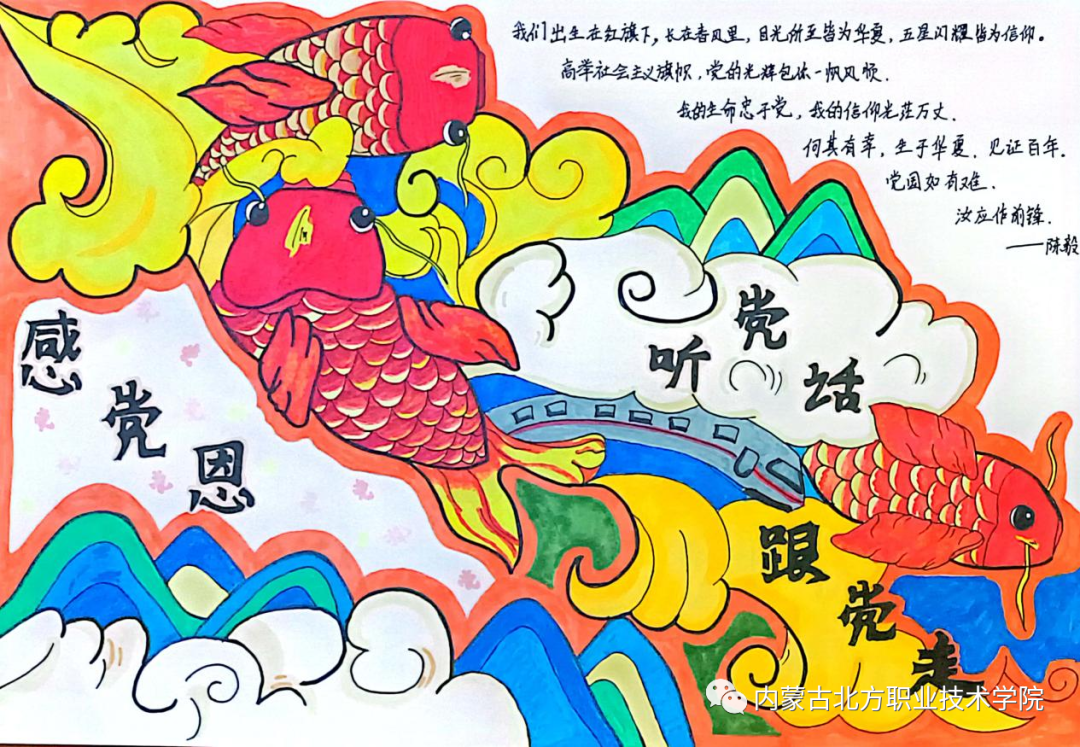 我们出生在红旗下，长在春风里，目光所至皆为华夏，五星闪耀皆为信仰。
高举社会主义旗帜，党的光辉包依一帆风顺．
我的生命忠于党，我的信仰光茫万丈．
何其有幸，生于华夏．见证百年．
党国如有难．
汝应作前锋．
——陈毅
感党恩
听党话
跟党走
内蒙古北方职业技术学院